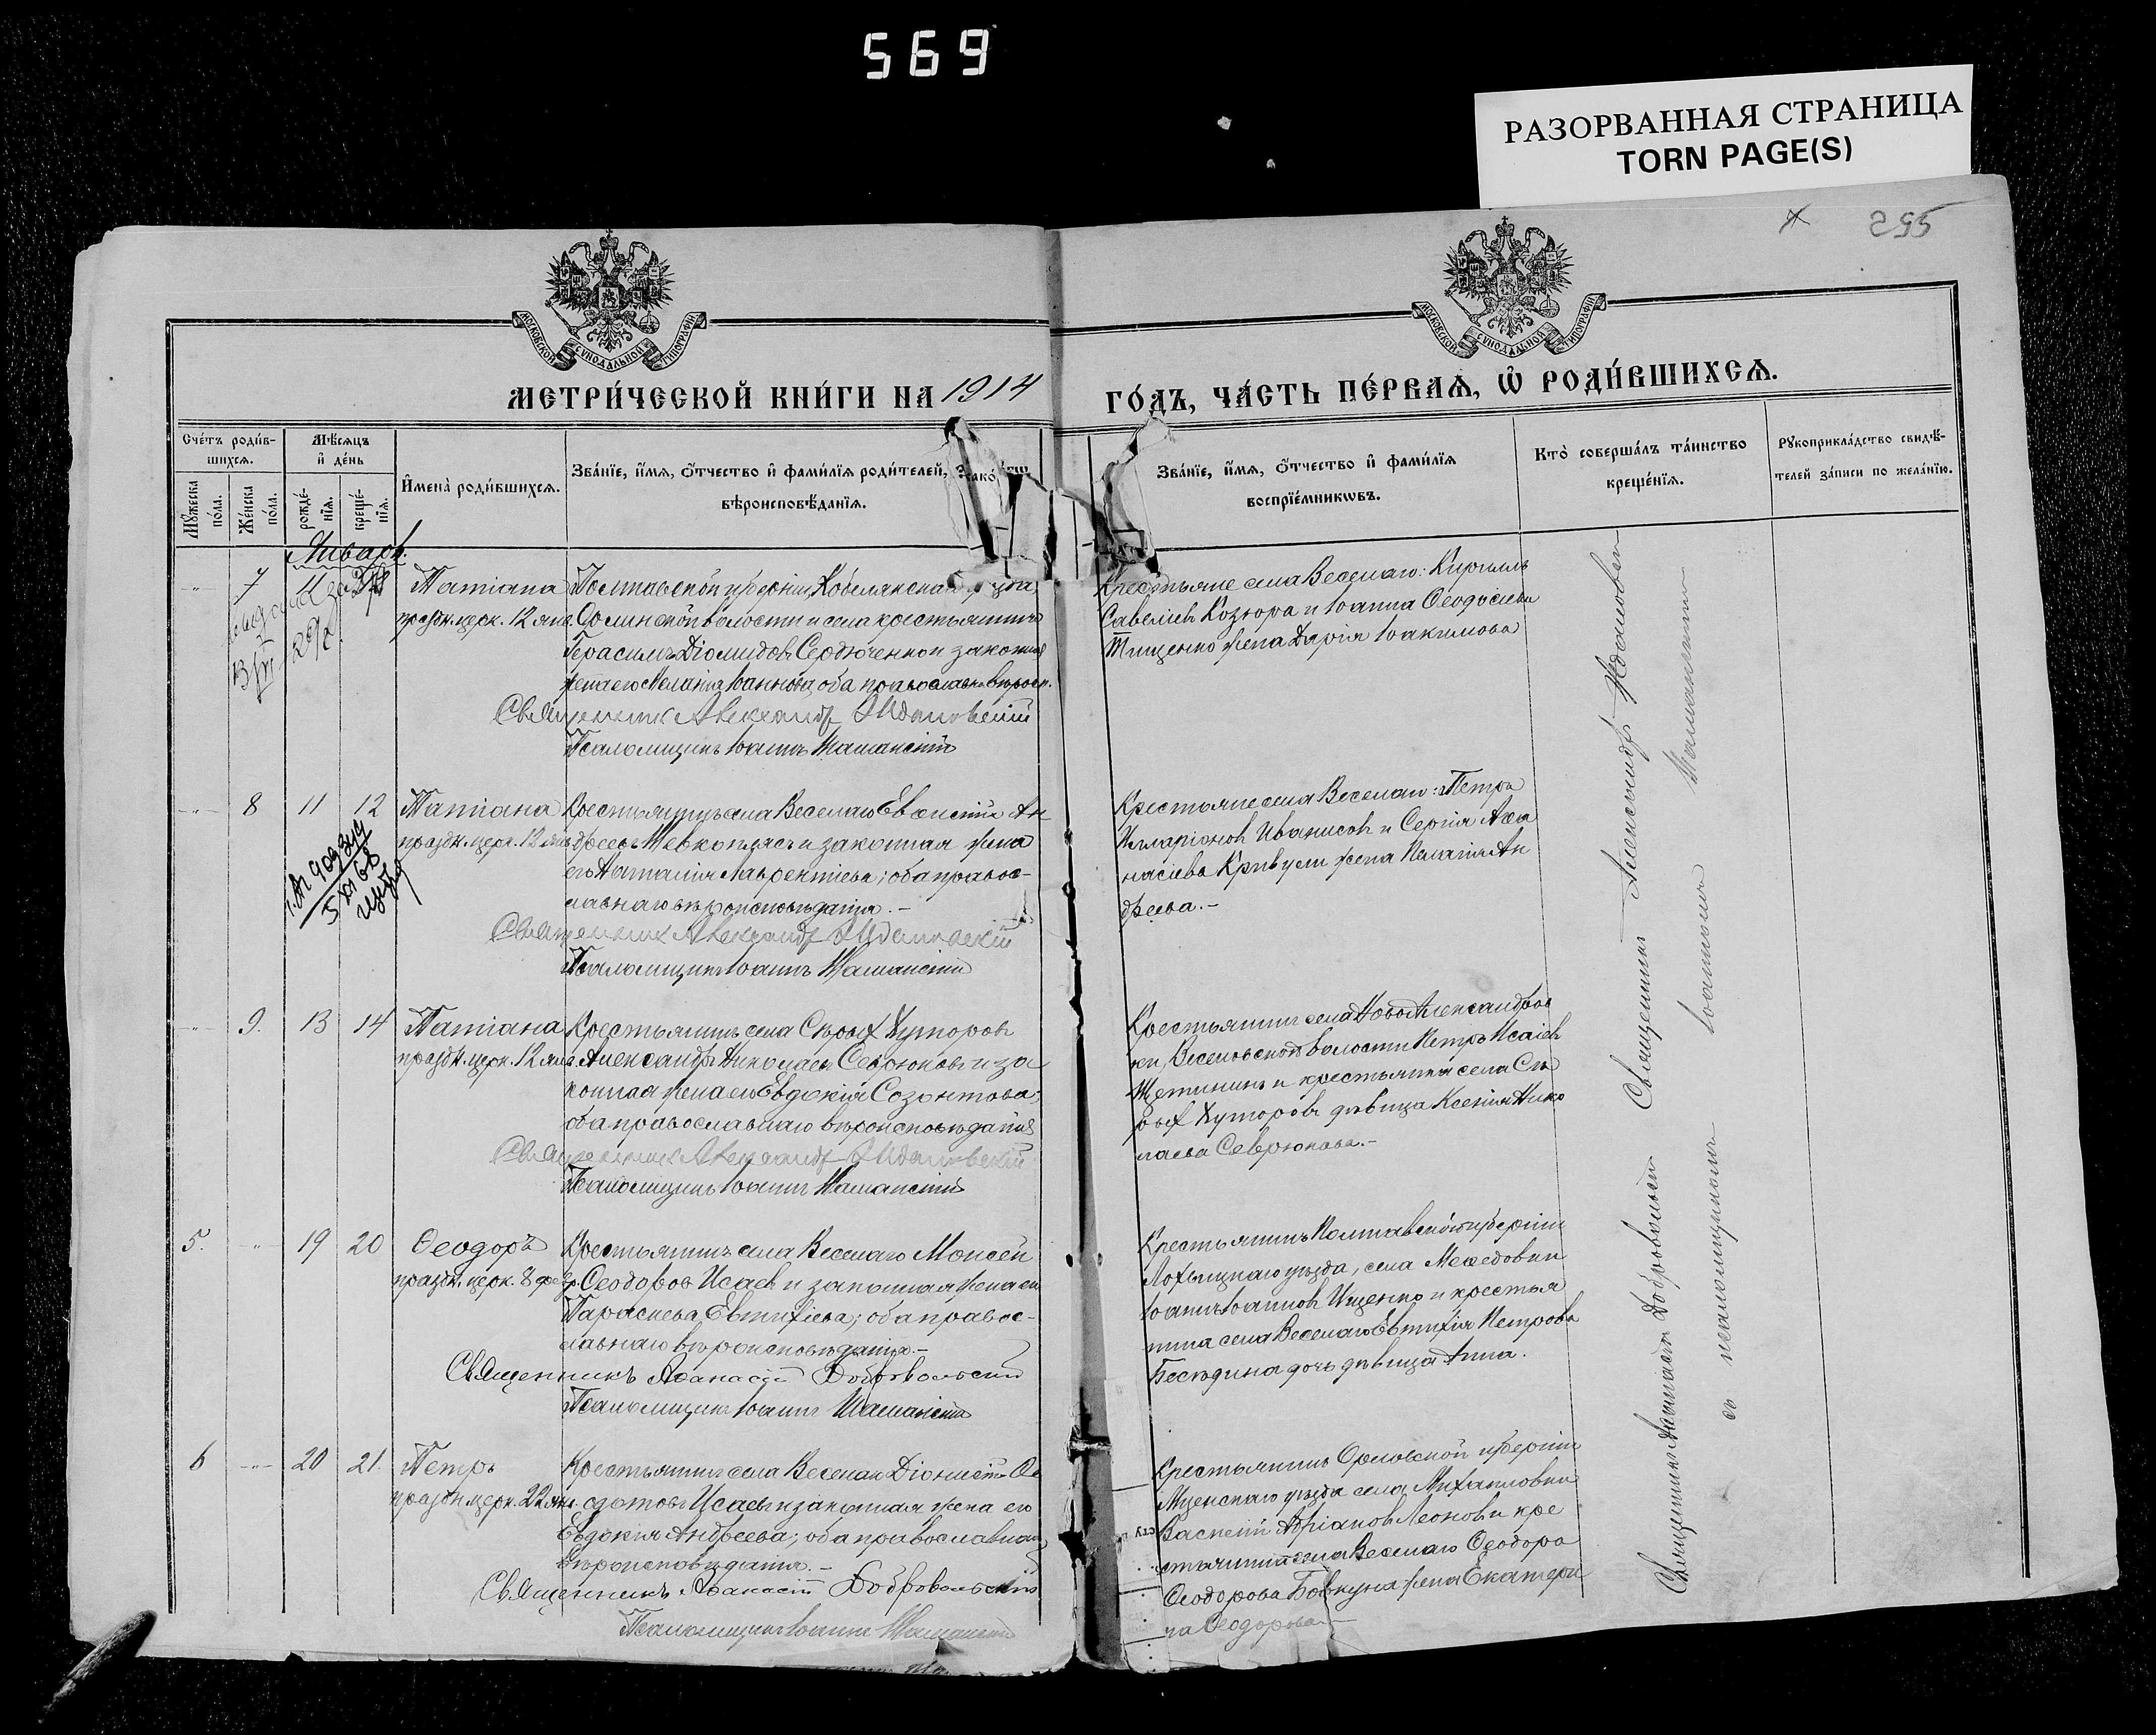 569
РАЗОРВАННАЯ СТРАНИЦА
TORN PAGE(S)
295
МОСКОВСКОЙ СѴНОДАЛЬНОЙ ТИПОГРАФІИ
МОСКОВСКОЙ СѴНОДАЛЬНОЙ ТИПОГРАФІИ
МЕТРИ́ЧЕСКОЙ КНИ́ГИ НА 1914
ГО́ДЪ, ЧА́СТЬ ПЕ́РВАѦ, Ѽ РОДИ́ВШИХСѦ.
Сче́тъ роди́в-
шихсѧ.
Мꙋ́жеска по́ла.
Же́нска по́ла.
Мѣ́сѧцъ
и҆ де́нь
рожде́-
нїѧ.
креще́-
нїѧ.
И҆мена̀ роди́вшихсѧ.
Зва́нїе, и҆́мѧ, ѻ҆́тчество и҆ фами́лїѧ роди́телей,
вѣроисповѣ́данїѧ.
Зва́нїе, и҆́мѧ, ѻ҆́тчество и҆ фами́лїѧ
воспрїе́мникѡвъ.
Кто̀ соверша́лъ та́инство
креще́нїѧ.
Рꙋкоприкла́дство свидѣ́-
телей за́писи по жела́нїю.
Январь.
7 11
Татіана
праздн. церк. 12 янв.
Полтавской губерніи, Кобелякскаго уѣзда,
волости и села крестьянинъ
Герасимъ Діомидовъ Сердюченко и законная
жена его Меланія Іоаннова, оба православн. вѣроисп.
Священник Александр Ждановский
Псаломщикъ Іоаннъ Шаманскій
Крестьяне села Веселаго: Кириллъ
Савеліевъ Козюра и Іоанна Ѳеодосіева
Тищенко жена Дарія Іоакимова
8 11 12
Татіана
праздн. церк. 12 янв.
Крестьянинъ села Веселаго Евсигній Ан
дреевъ Шевкоплясъ и законная жена
его Наталія Лаврентіева; оба правос-
лавнаго вѣроисповѣданія.-
Священник Александр Ждановский
Псаломщикъ Іоаннъ Шаманскій
Крестьяне села Веселаго: Петръ
Илларіоновъ Иванисовъ и Сергія Аѳа
насіева Кривули жена Пелагія Ан
дреева.-
9. 13 14
Татіана
праздн. церк. 12 янв.
Крестьянинъ села Сѣрыхъ Хуторовъ
Александръ Николаевъ Севрюковъ и за
конная жена его Евдокія Созонтова;
оба православнаго вѣроисповѣданія
Священник Александр Ждановский
Псаломщикъ Іоаннъ Шаманскій
Крестьянинъ села НовоАлександров
ки, Веселовской волости Петръ Исаіевъ
Щетининъ и крестьянка села Сѣ
рыхъ Хуторовъ дѣвица Ксенія Нико
лаева Севрюкова.-
5. 19 20
Ѳеодоръ
праздн. церк. 8 февр.
Крестьянинъ села Веселаго Моисей
Ѳеодоровъ Исаевъ и законная жена его
Параскева Евтихіева; оба правос-
лавнаго вѣроисповѣданія.-
Священникъ Аѳанасій Добровольскій
Псаломщикъ Іоаннъ Шаманскій
Крестьянинъ Полтавской губерніи
Лохвицкаго уѣзда, села
Іоаннъ Іоанновъ Ищенко и крестья
нина села Веселаго Евтихія Петрова
Бесѣдина дочь дѣвица Анна.
6 20 21.
Петръ
праздн. церк. 22 янв.
Крестьянинъ села Веселаго Діонисій Ѳе
Исаевъ и законная жена его
Евдокія Андреева; оба православнаго
вѣроисповѣданія.-
Священникъ Аѳанасій Добровольскій
Псаломщикъ Іоаннъ Шаманскій
Крестьянинъ Орловской губерніи
Мценскаго уѣзда села Михайловки
Василій Адріановъ Леоновъ и кре
стьянина села Веселаго Ѳеодора
Ѳеодорова Бовкуна жена Екатери
на Ѳеодорова
Священникъ Александръ Ждановскій
Священникъ Аѳанасій Добровольскій
съ псаломщикомъ Іоанномъ Шаманскимъ